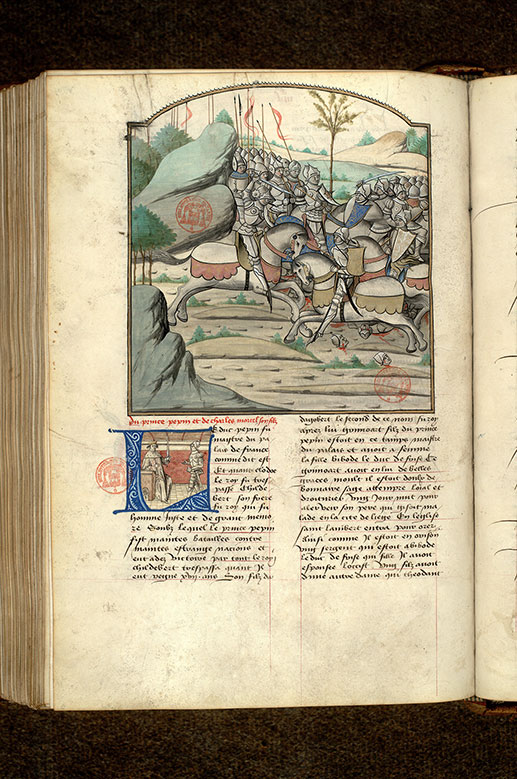 Du prince pepin et de charles martel son filz
Le duc pepin fu
maistre du pa
lais de france
comme dit est
Et quant clodoue
le roy fu tres
passe Childe
bert son frere
fu roy qui fu
homme juste et de grant memo
re Soubz lequel le prince pepin
fist maintes batailles contre
maintes estranges nacions et
eut adez victoire par tout le roy
childebert trespassa quant Il
eut regne xvii ans Son filz du
dagobert le second de ce nom fu roy
apres lui Grimoart filz du prince
pepin estoit en ce temps maistre
du palais et auoit a femme
la fille Rabode le duc de frise Ce
Grimoart auoit en lui de belles
graces moult Il estoit doulz de
bonnaire sage attempre loial et
droiturier Ung Jour mut pour
aler veir son pere qui gisoit ma
lade en la cite de liege En leglise
saint lambert entra pour orer
Ainsi comme Il estoit en orison
Ung sergent qui estoit a Rabode
le duc de frise qui fille Il auoit
espousee loccist Ung filz auoit
dune autre dame qui theodart